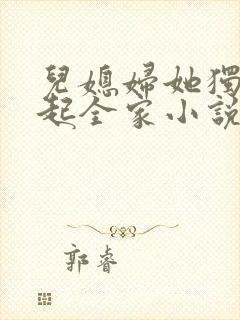 兒媳婦她獨
起全家小說
郭睿